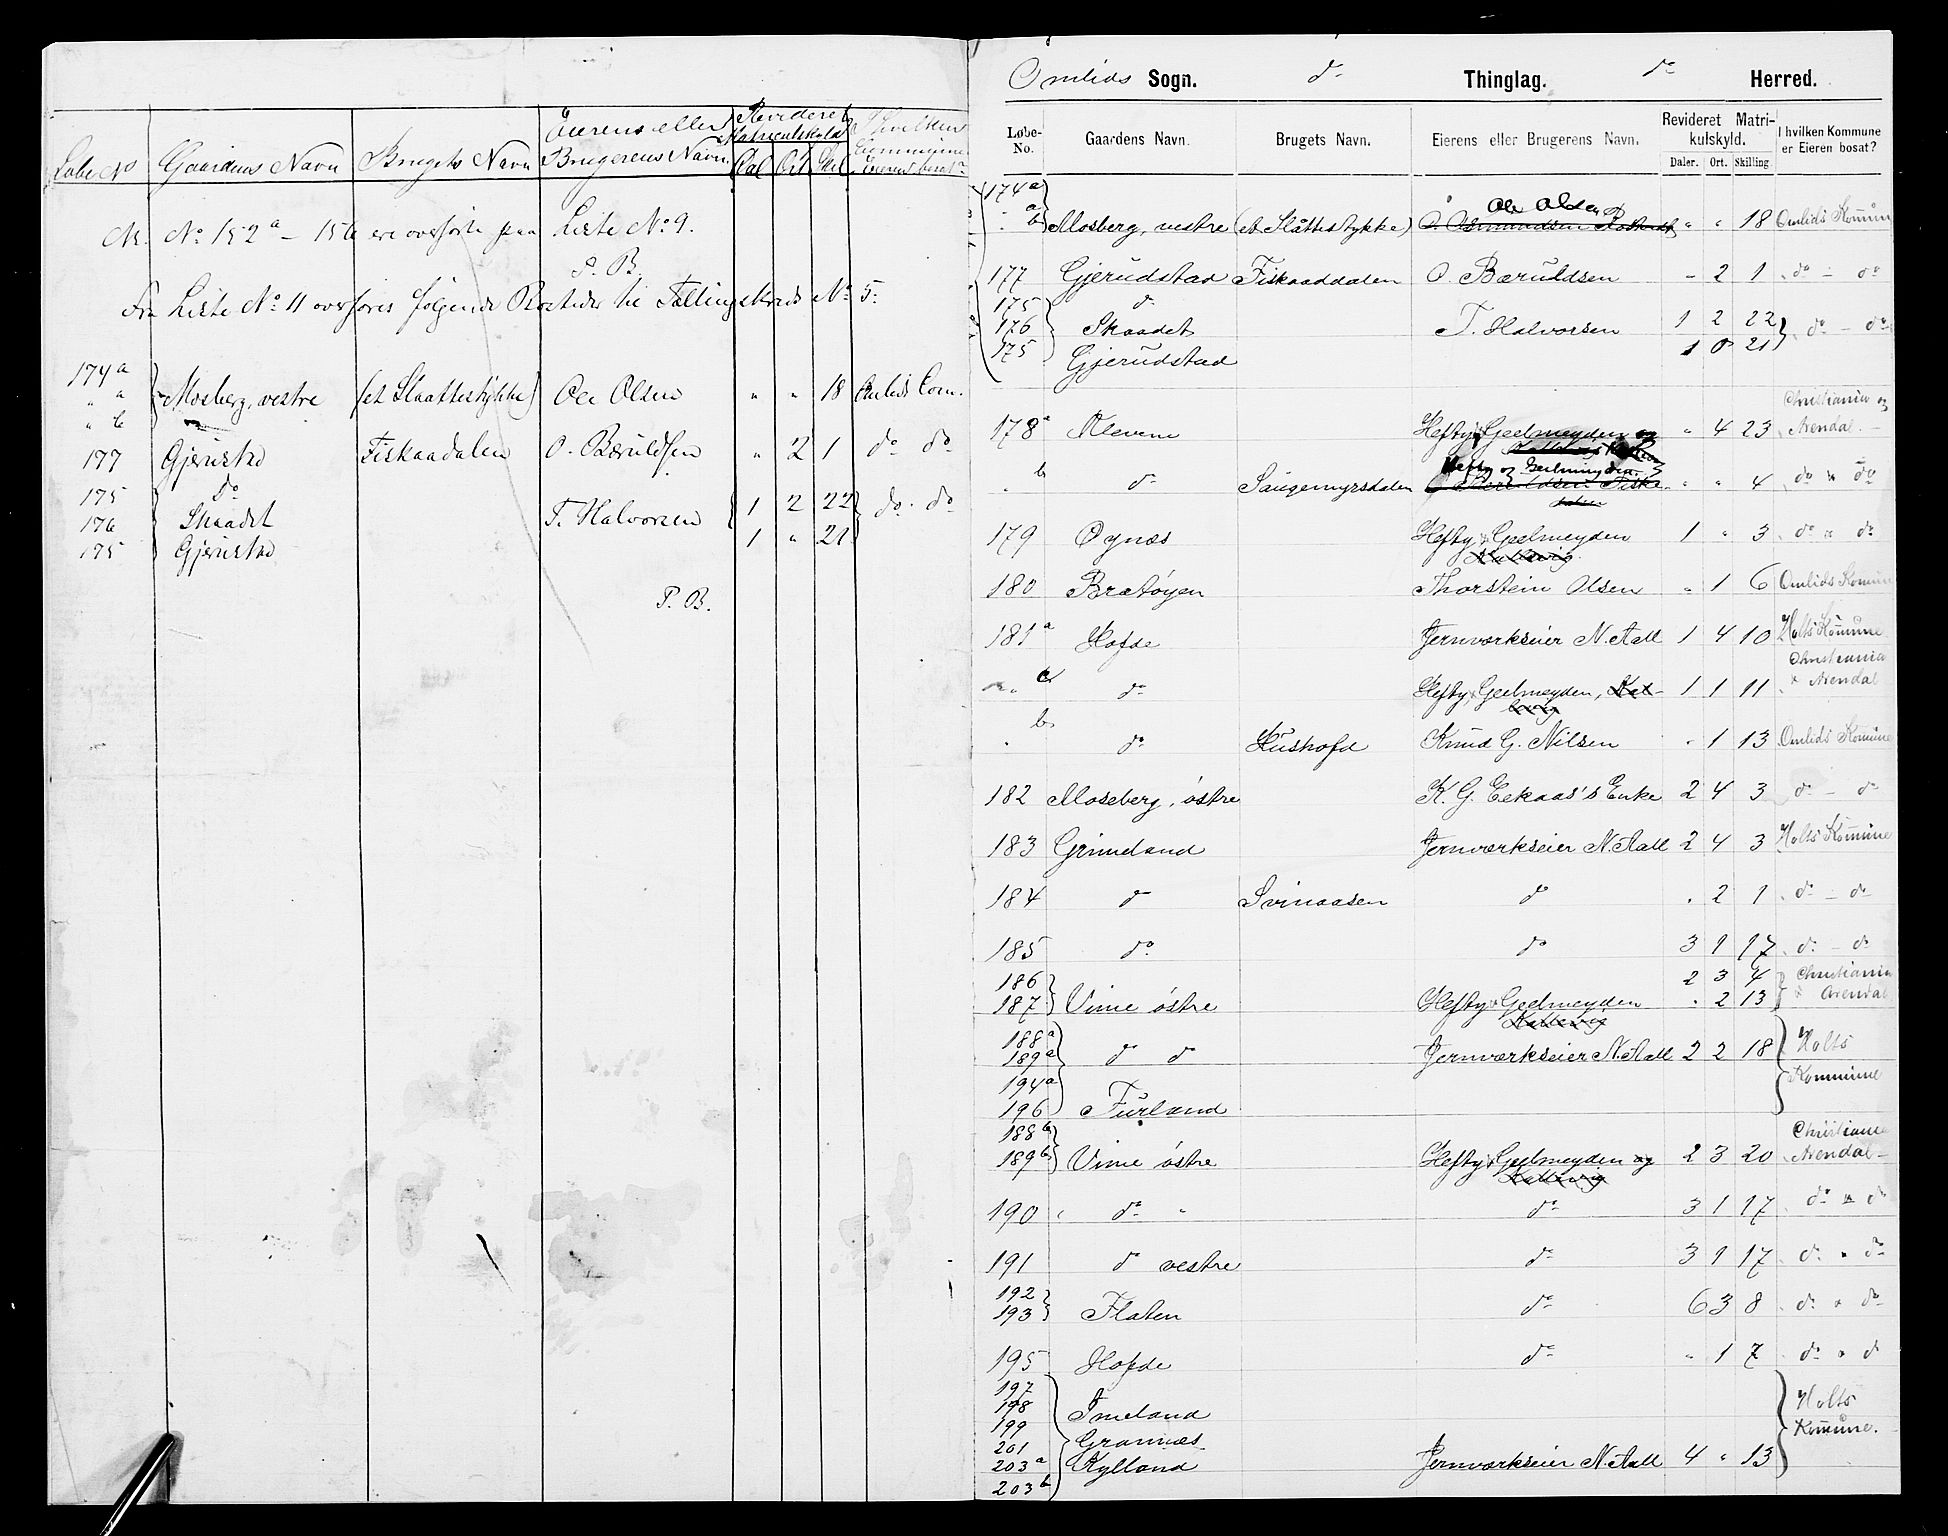 Løbe No Gaardens Navn Brugets Navn Eierens eller Brugerens Navn Revideret Matriculskyld Dal Ort Skil I hvilken Commune Eieren bosat?
No 152a – 156 ere overførte paa Liste No 9.
P. B.
Fra Liste No 11 overføres følgende Bosteder til Tællingskreds No 5:
174a
" a } Mosberg, vestre (et Slaattestykke) Ole Olsen " " 18 Omlids Com.
" b
177 Gjerustad Fiskaadalen O. Bæruldsen " 2 1 do do
175 do
176 Skaadet T. Halvorsen 1 2 22 } do. do
175 Gjerustad 1 " 21
P. B.
Omlids Sogn. do Thinglag. do Herred.
Løbe-No. Gaardens Navn. Brugets Navn. Eierens eller Brugerens Navn. Revideret Matrikulskyld. Daler. Ort. Skilling I hvilken Kommune er Eieren bosat?
174a
" a Ole Olsen
" b Mosberg, vestre (et Slåttestykke) O. Osmundsen " " 18 Omlids Komun
177 Gjerudstad Fiskaaddalen O. Bæruldsen - 2 1 do – do
175 do
176 Skaadet T. Halvorsen 1 2 22 } do – do
175 Gjerudstad 1 0 21
178a Alevene Hefty & Geelmeyden og " 4 23 Christiania og Arendal. –
" b do Saugemyrsdalen Hefty og Geelmeyden " " 4 do " do
179 Øynæs Hefty & Geelmeyden 1 " 3 do " do
Kallevig
180 Bratøyen Thorstein Olsen " 1 6 Omlids Komun
181a Hofde Jernværkseier N. Aall 1 4 10 Holts Komune
" c do Hefty, Geelmeyden, Kallevig 1 1 11 Christiania & Arendal
" b do Hushofd Knud G. Nilsen " 1 13 Omlids Komune
182 Moseberg, østre K. G. Eekaas's Enke 2 4 3 do – do
183 Grimeland Jernværkseier N. Aall 2 4 3 Holts Komune
184 do Svinaasen do " 2 1 do – do
185 do do 3 1 17 do – do
186 2 3 4 Christiania
187 } Vime østre Hefty & Geelmeyden " 2 13 & Arendal
Kallevig
188a
189a do do Jernværkseier N. Aall 2 2 18 Holts
194a Kommune
196 Furland
188b Christiania
189b Vime østre Hefty & Geelmeyden og 2 3 20 Arendal –
Kallevig
190 do " do 3 1 17 do " do
191 do vestre do 3 1 17 do " do
192
193 } Flaten do 6 3 8 do " do
195 Hofde do " 1 7 do " do
197
198 Imeland Holts
199 Komune.
201 Grannæs
203a Kylland Jernværkseier N. Aall 4 " 13
203b